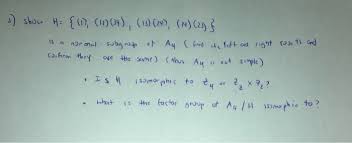 2) show H = { (1), (12)(34), (13)(24), (14)(23) }
is a normal subgroup of A4 ( find its left and right cosets and
confirm they are the same ) ( thus A4 is not simple )
• Is H isomorphic to Z4 or Z2 x Z2?
• what is the factor group of A4 / H isomorphic to?